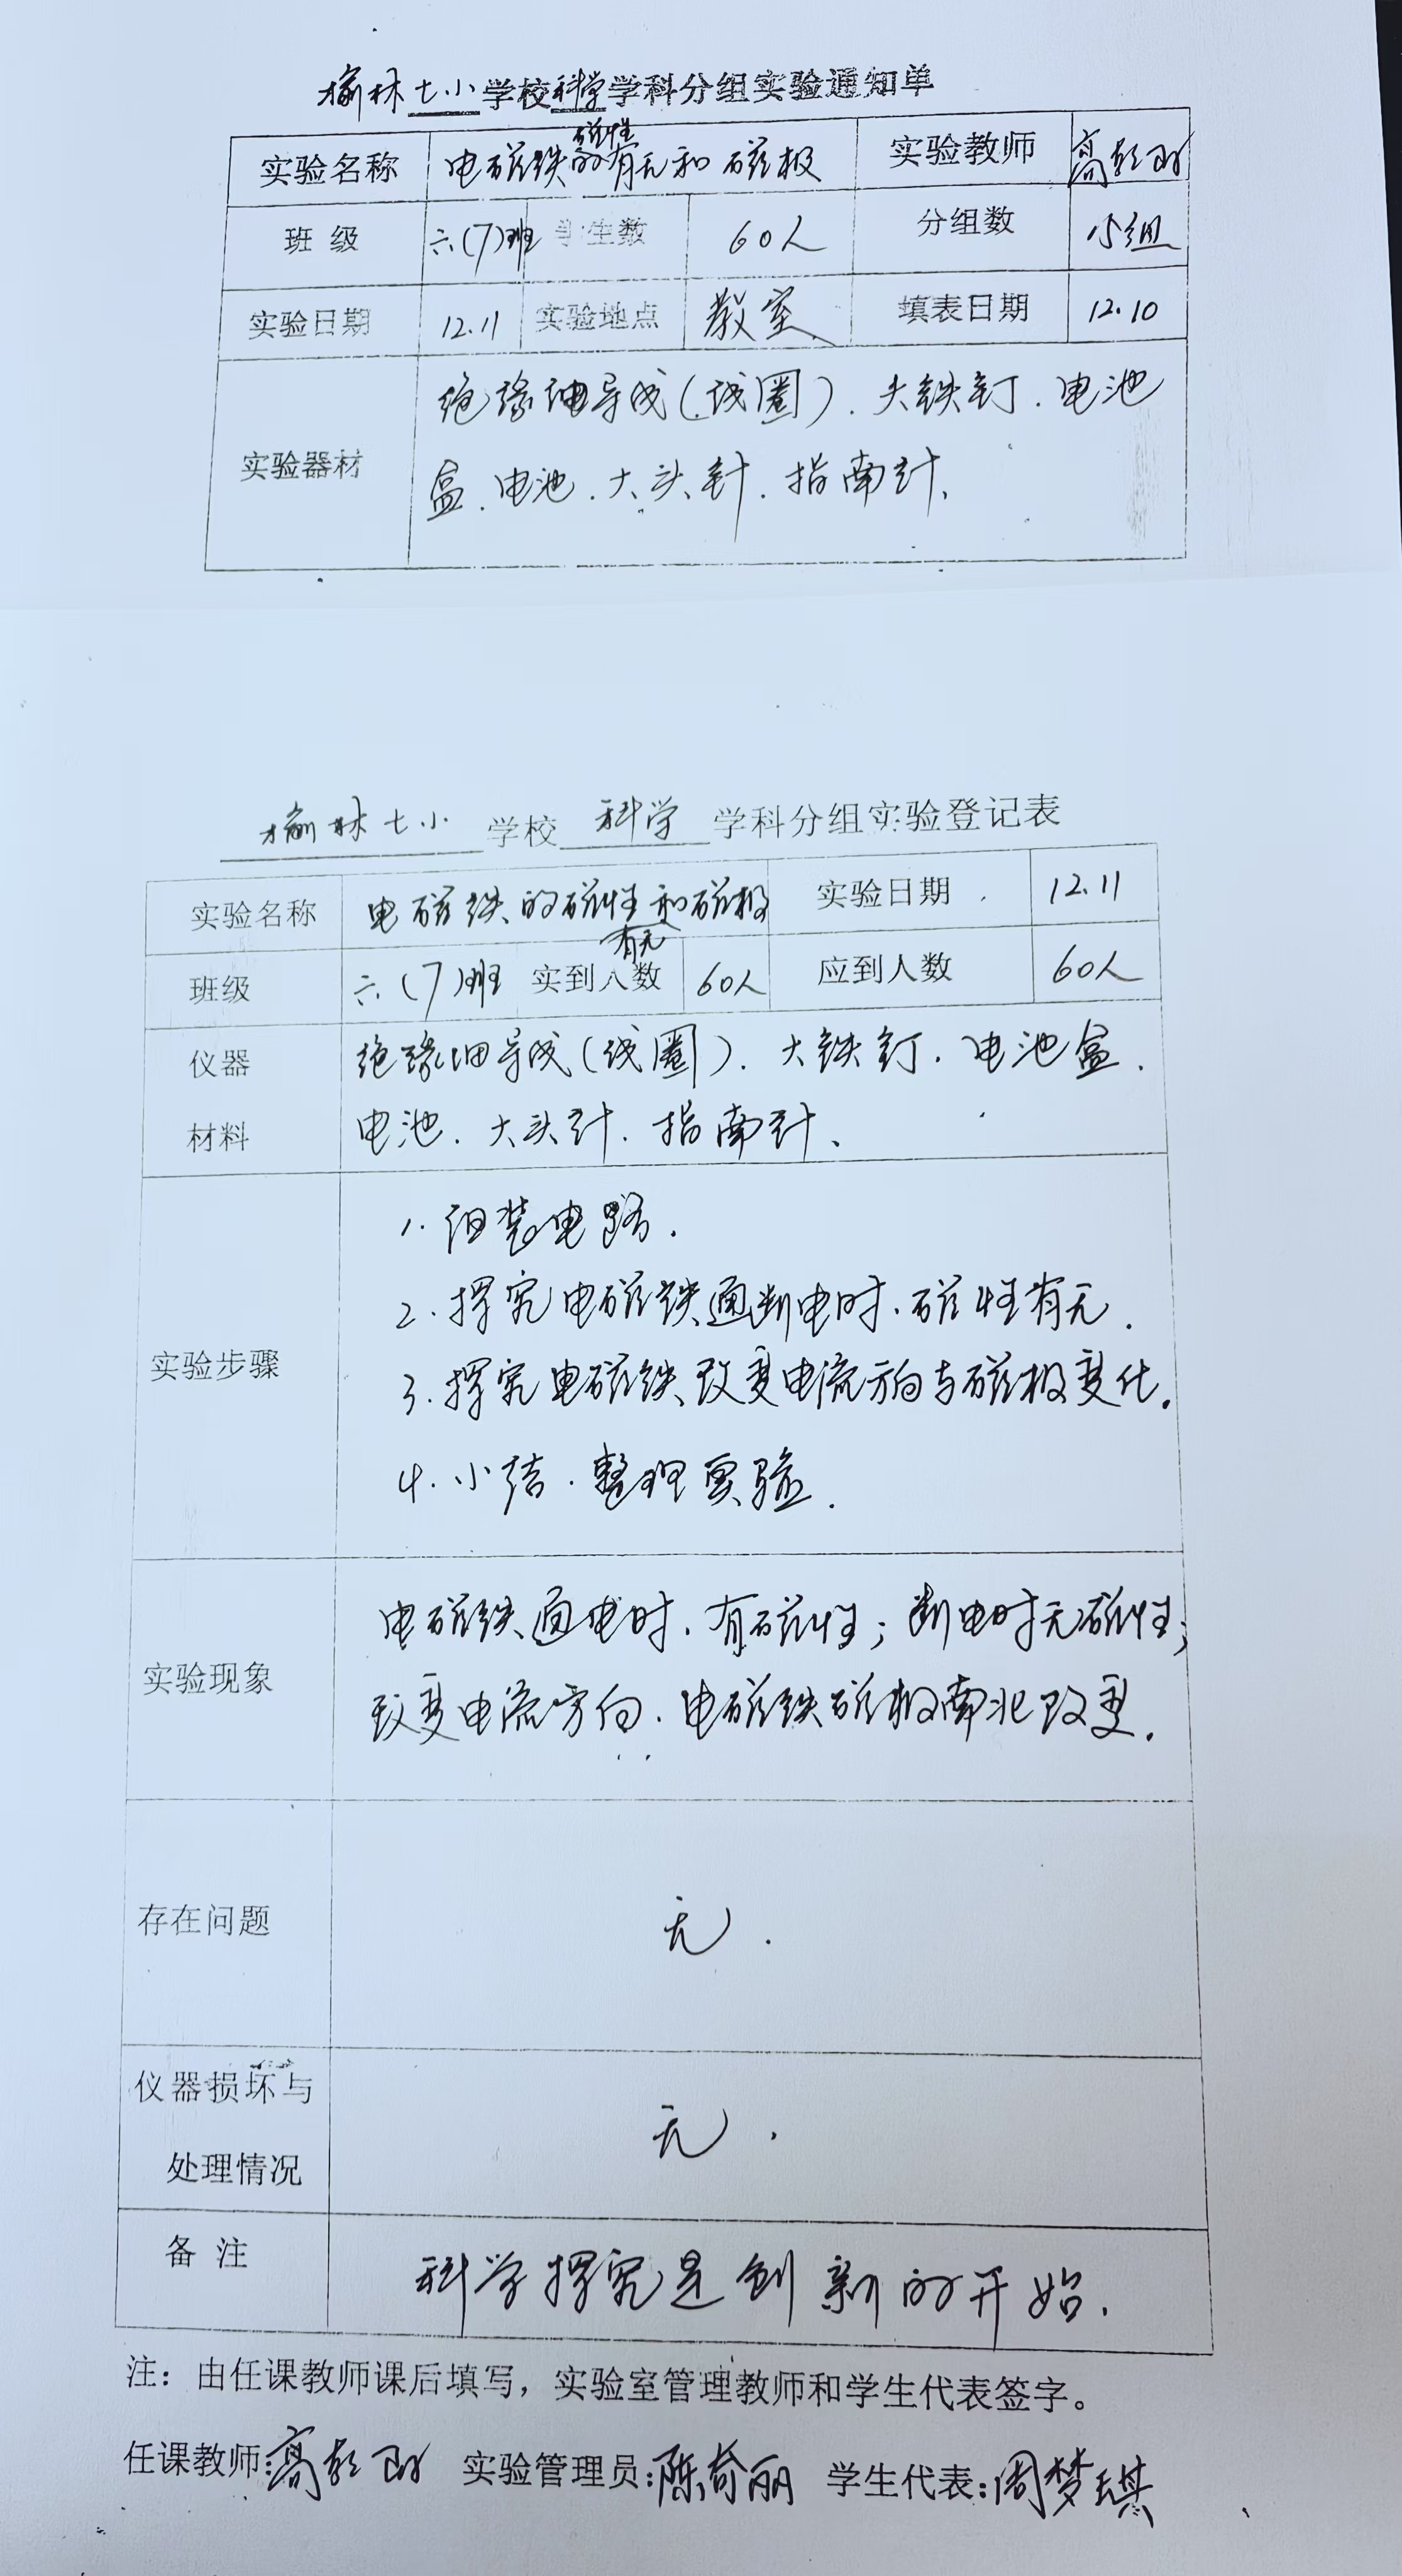 榆林七小学校科学学科分组实验通知单
实验名称 电磁铁的磁性有无和磁极 实验教师 高
班 级 六(7)班 学生数 60人 分组数 15组
实验日期 12.11 实验地点 教室 填表日期 12.10
实验器材 绝缘细导线(线圈)、大铁钉、电池
盒、电池、大头针、指南针、
榆林七小 学校 科学 学科分组实验登记表
实验名称 电磁铁的磁性有无和磁极 实验日期 12.11
班级 六(7)班 实到人数 60人 应到人数 60人
仪器 绝缘细导线(线圈)、大铁钉、电池盒、
材料 电池、大头针、指南针、
1. 组装电路.
2. 探究电磁铁通断电时、磁性有无.
实验步骤
3. 探究电磁铁改变电流方向与磁极变化.
4. 小结、整理实验.
电磁铁通电时、有磁性;断电时无磁性;
实验现象
改变电流方向、电磁铁磁极南北改变.
存在问题 无.
仪器损坏与
处理情况 无.
备 注 科学探究是创新的开始.
注：由任课教师课后填写，实验室管理教师和学生代表签字。
任课教师:高 实验管理员:陈奇丽 学生代表:周梦琪